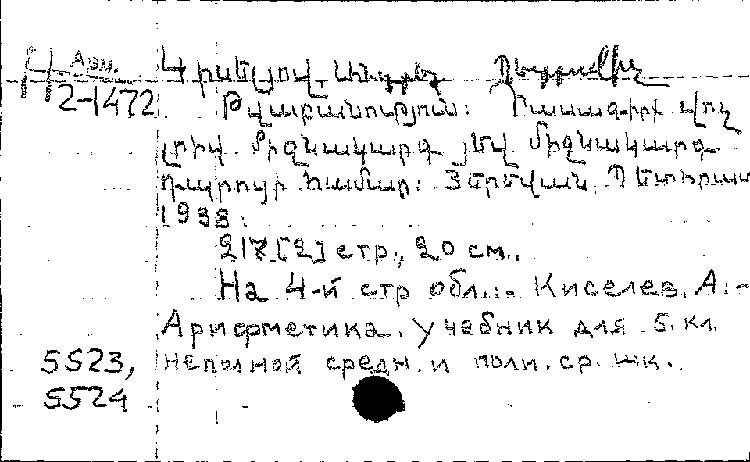 Арм.
2-1472
Կիսելյով, Անդրեյ Պետրովիչ
Թվաբանություն: Դասագիրք վոչ
լրիվ միջնակարգ յեվ միջնակարգ
դպրոցի համար: Յերեվան, Պետհրատ
1938:
217 [2] стр., 20 см.
На 4-й стр обл.:- Киселев, А.-
Арифметика. Учебник для 5. кл.
неполной средн. и полн. ср. шк.
5523,
5524